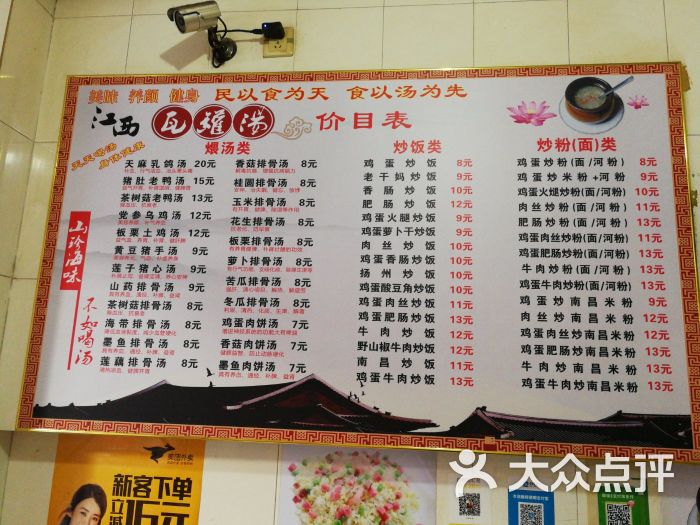 美味 养颜 健身 民以食为天 食以汤为先
江西瓦罐汤 价目表
天天喝汤
身体健康
山珍海味
不如喝汤
煨汤类
天麻乳鸽汤 20元
猪肚老鸭汤 15元
茶树菇老鸭汤 13元
党参乌鸡汤 12元
板栗土鸡汤 12元
青豆猪手汤 9元
莲子猪心汤 9元
山药排骨汤 9元
茶树菇排骨汤 8元
海带排骨汤 8元
墨鱼排骨汤 8元
莲藕排骨汤 8元
香菇排骨汤 8元
桂圆排骨汤 8元
玉米排骨汤 8元
花生排骨汤 8元
板栗排骨汤 8元
萝卜排骨汤 8元
苦瓜排骨汤 8元
冬瓜排骨汤 8元
鸡蛋肉饼汤 7元
香菇肉饼汤 7元
墨鱼肉饼汤 7元
炒饭类
鸡蛋炒饭 8元
老干妈炒饭 9元
香肠炒饭 10元
肥肠炒饭 12元
鸡蛋火腿炒饭 10元
鸡蛋萝卜干炒饭 9元
肉丝炒饭 10元
鸡蛋香肠炒饭 10元
扬州炒饭 12元
鸡蛋酸豆角炒饭 10元
鸡蛋肉丝炒饭 11元
鸡蛋肥肠炒饭 13元
牛肉炒饭 12元
野山椒牛肉炒饭 12元
南昌炒饭 12元
鸡蛋牛肉炒饭 13元
炒粉(面)类
鸡蛋炒粉(面/河粉) 8元
鸡蛋炒米粉+河粉 9元
鸡蛋火腿炒粉(面/河粉) 10元
肉丝炒粉(面/河粉) 10元
肥肠炒粉(面/河粉) 12元
鸡蛋肉丝炒粉(面/河粉) 11元
鸡蛋肥肠炒粉(面/河粉) 13元
牛肉炒粉(面/河粉) 12元
鸡蛋牛肉炒粉(面/河粉) 13元
鸡蛋炒南昌米粉 9元
肉丝炒南昌米粉 11元
鸡蛋肉丝炒南昌米粉 12元
肥肠炒南昌米粉 12元
鸡蛋肥肠炒南昌米粉 13元
牛肉炒南昌米粉 12元
鸡蛋牛肉炒南昌米粉 13元
美团外卖
新客下单
立减15元
大众点评